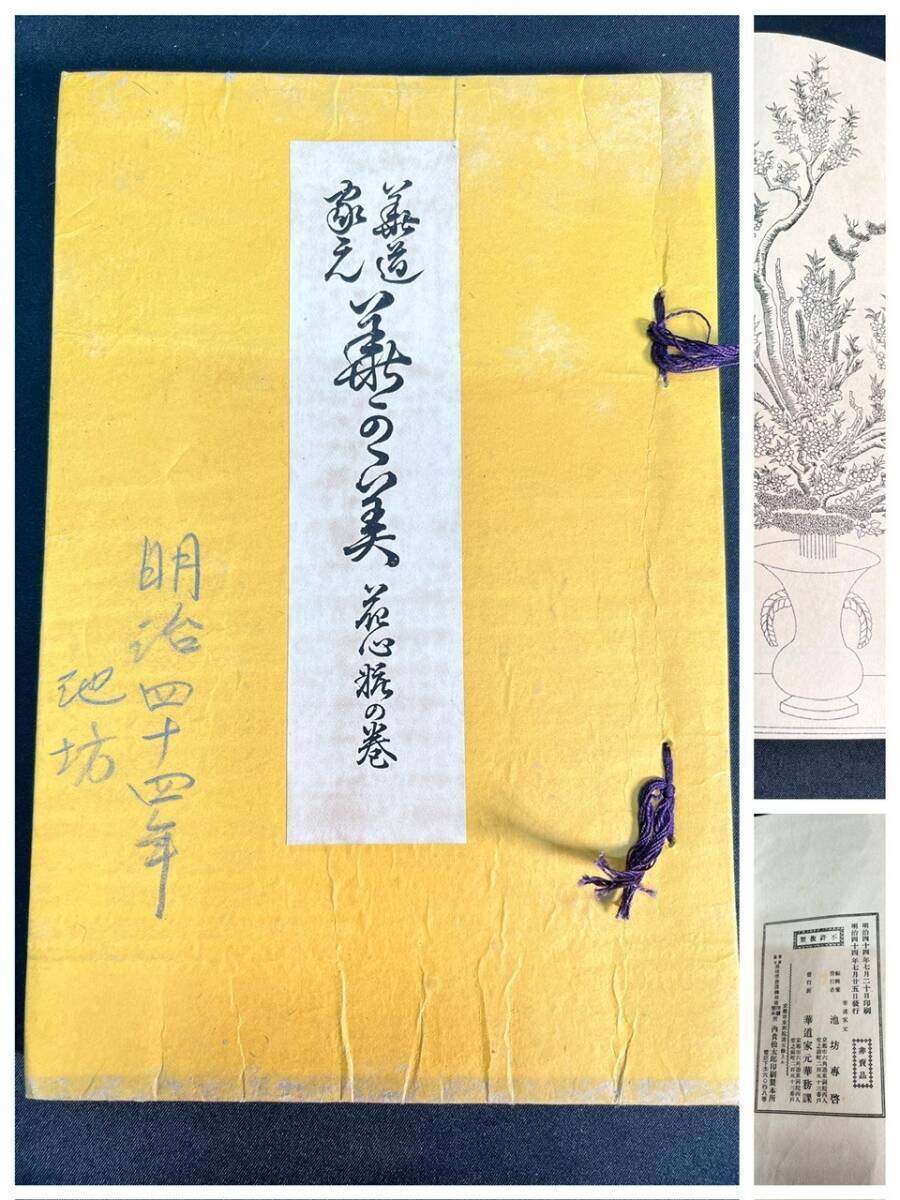 華道
家元
華の美
花心粧の巻
明治四十四年
池坊
不許複製
明治四十四年七月二十日印刷
明治四十四年七月廿五日發行
非賣品
華道家元
池坊專啓
發行所
華道家元華務課